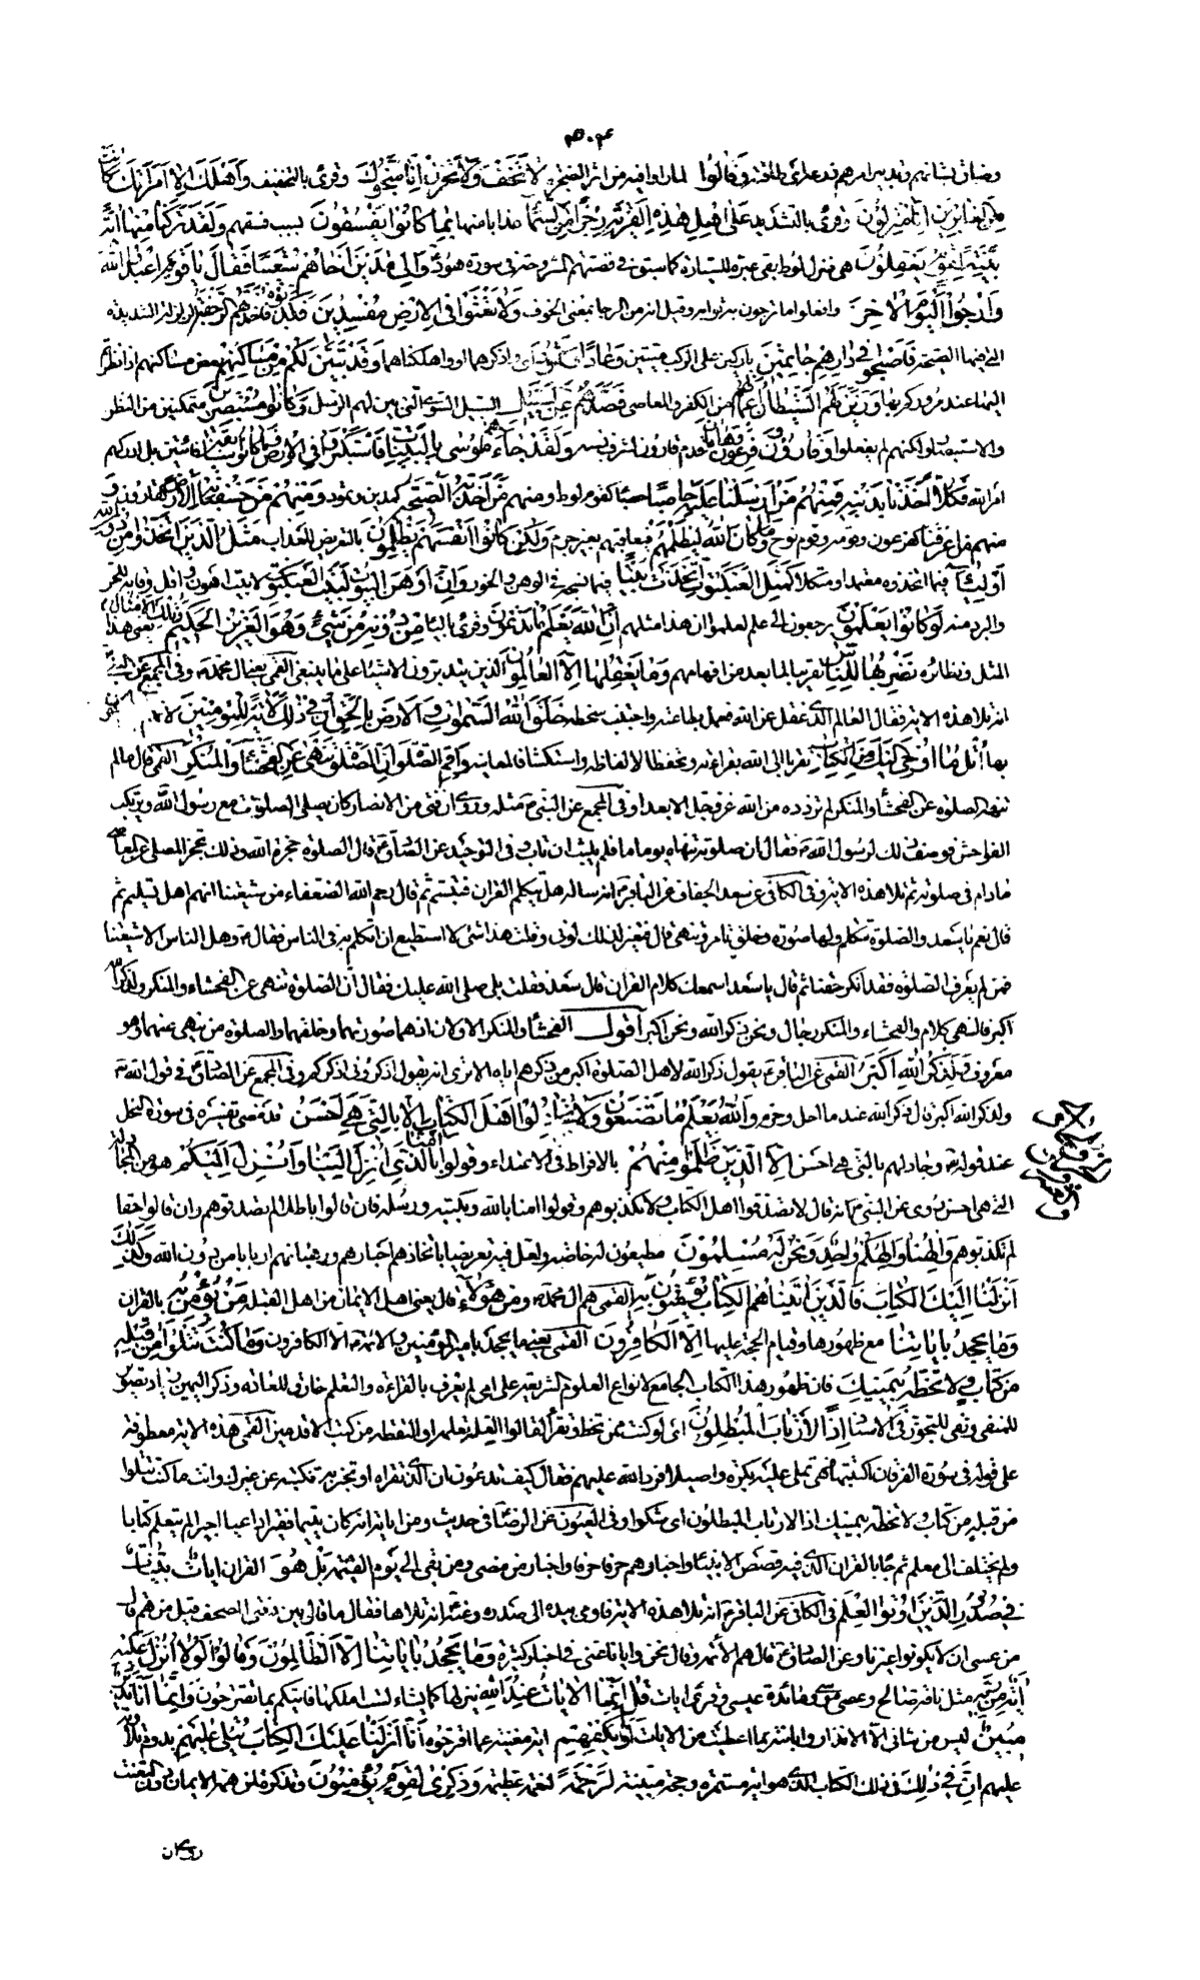 وضاق بشأنهم وتدبير امرهم ذرعه اى طاقته وقالوا لما راوا فيه من اثر الضجرة لا تخف ولا تحزن انا منجوك وقرئ بالتخفيف واهلك الا امرأتك كانت
من الغابرين انا منزلون وقرئ بالتشديد على اهل هذه القرية رجزا من السماء عذابا منها بما كانوا يفسقون بسبب فسقهم ولقد تركنا منها اية
بينة لقوم يعقلون هى منزل لوط بقى عبرة للسيارة كما سبق فى قصتهم مشروحة فى سورة هود والى مدين اخاهم شعيبا فقال يا قوم اعبدوا الله
وارجوا اليوم الاخر وافعلوا ما ترجون به ثوابه وقيل انه من الرجا بمعنى الخوف ولا تعثوا فى الارض مفسدين فكذبوه فاخذتهم الرجفة الزلزلة الشديدة
التى فيها الصيحة فاصبحوا فى دارهم جاثمين باركين على الركب ميتين وعادا وثمود اى واذكرهما او واهلكناهما وقد تبين لكم من مساكنهم بعض مساكنهم اذا نظرتم
اليها عند مروركم بها وزين لهم الشيطان اعمالهم من الكفر والمعاصى فصدهم عن السبيل السبيل السوى الذى بين لهم الرسل وكانوا مستبصرين متمكنين من النظر
والاستبصار ولكنهم لم يفعلوا وقارون وفرعون وهامان قدم قارون لشرف نسبه ولقد جاءهم موسى بالبينات فاستكبروا فى الارض وما كانوا سابقين فائتين بل ادركهم
امر الله فكلا اخذنا بذنبه فمنهم من ارسلنا عليه حاصبا حصبا كقوم لوط ومنهم من اخذته الصيحة كمدين وثمود ومنهم من خسفنا به الارض كقارون و
منهم من اغرقنا كفرعون وقومه وقوم نوح وما كان الله ليظلمهم فيعاقبهم بغير جرم ولكن كانوا انفسهم يظلمون بالتعريض للعذاب مثل الذين اتخذوا من دون الله
اولياء فيما اتخذوه معتمدا ومتكلا كمثل العنكبوت اتخذت بيتا فيما نسجه فى الوهن والخور وان اوهن البيوت لبيت العنكبوت لا بيت اهون واقل وقاية للحر
والبرد منه لو كانوا يعلمون يرجعون الى علم لعلموا ان هذا مثلهم ان الله يعلم ما تدعون وقرئ بالياء من دونه من شىء وهو العزيز الحكيم وتلك الامثال يعنى هذا
المثل ونظائره نضربها للناس تقريبا لما بعد من افهامهم وما يعقلها الا العالمون الذين يتدبرون الاشياء على ما ينبغى القمى يعنى ال محمد وفى المجمع عن النبى
انه تلا هذه الاية فقال العالم الذى عقل عن الله فعمل بطاعته واجتنب سخطه خلق الله السموات والارض بالحق ان فى ذلك لاية للمؤمنين لانهم المنتفعون
بها اتل ما اوحى اليك من الكتاب تقربا الى الله بقرائته وتحفظا لالفاظه واستكشافا لمعانيه واقم الصلوة ان الصلوة تنهى عن الفحشاء والمنكر القمى قال ما لم
تنهه الصلوة عن الفحشاء والمنكر لم تزدده من الله عز وجل الا بعدا وفى المجمع عن النبى مثله وروى ان فتى من الانصار كان يصلى الصلوة مع رسول الله ويرتكب
الفواحش فوصف ذلك لرسول الله فقال ان صلوته تنهاه يوما ما فلم يلبث ان تاب وفى التوحيد عن الصادق قال الصلوة حجزة الله وذلك تحجز المصلى عن المعاصى
ما دام فى صلوته ثم تلا هذه الاية وفى الكافى عن سعد الخفاف عن الباقر انه ساله هل يتكلم القران فتبسم ثم قال رحم الله الضعفاء من شيعتنا انهم اهل تسليم ثم
قال نعم يا سعد والصلوة تتكلم ولها صورة وخلق تامر وتنهى قال فتغير لذلك لونى وقلت هذا شئ لا استطيع ان اتكلم به فى الناس فقال وهل الناس الا شيعتنا
فمن لم يعرف الصلوة فقد انكر حقنا ثم قال يا سعد اسمعك كلام القران قال سعد فقلت بلى صلى الله عليك فقال ان الصلوة تنهى عن الفحشاء والمنكر ولذكر الله
اكبر فالنهى كلام والفحشاء والمنكر رجال ونحن ذكر الله ونحن اكبر اقول الفحشاء والمنكر الاولان اذ هما صورتهما وخلقهما والصلوة من ينهى عنهما وهو
معروف ولذكر الله اكبر القمى عن الباقر يقول ذكر الله لاهل الصلوة اكبر من ذكرهم اياه الا ترى انه يقول اذكرونى اذكركم وفى المجمع عن الصادق فى قول الله
ولذكر الله اكبر قال ذكر الله عند ما احل وحرم والله يعلم ما تصنعون ولا تجادلوا اهل الكتاب الا بالتى هى احسن قد مضى تفسيره فى سورة النحل
عند قوله وجادلهم بالتى هى احسن الا الذين ظلموا منهم بالافراط فى الاعتداء وقولوا امنا بالذى انزل الينا وانزل اليكم هو من المجادلة
التى هى احسن روى عن النبى انه قال لا تصدقوا اهل الكتاب ولا تكذبوهم وقولوا امنا بالله وبكتبه ورسله فان قالوا باطلا لم تصدقوهم وان قالوا حقا
لم تكذبوهم والهنا والهكم واحد ونحن له مسلمون مطيعون له خاصة ولعل فيه تعريضا باتخاذهم احبارهم ورهبانهم اربابا من دون الله وكذلك
انزلنا اليك الكتاب فالذين اتيناهم الكتاب يؤمنون به القمى هم ال محمد ومن هؤلاء قال يعنى اهل الايمان من اهل القبلة من يؤمن به بالقران
وما يجحد باياتنا مع ظهورها وقيام الحجة عليها الا الكافرون القمى يعنى ما يجحد بامير المؤمنين والائمة الا الكافرون وما كنت تتلوا من قبله
من كتاب ولا تخطه بيمينك فان ظهور هذا الكتاب الجامع لانواع العلوم الشريفة على امى لم يعرف بالقراءة والتعلم خارق للعادة وذكر اليمين زيادة تصوير
للمنفى ونفى للتجوز فى الاسناد اذا لارتاب المبطلون اى لو كنت ممن تخط وتقرأ لقالوا لعله تعلمه او التقطه من كتب الاقدمين القمى هذه الاية معطوفة
على قوله فى سورة الفرقان اكتتبها فهى تملى عليه بكرة واصيلا فرد الله عليهم فقال كيف تدعون ان الذى تقراه او تخبر به تكتبه عن غيرك وانت ما كنت تتلوا
من قبله من كتاب ولا تخطه بيمينك اذا لارتاب المبطلون اى شكوا وفى العيون عن الرضا فى حديث ومن اياته انه كان يتيما فقيرا راعيا اجيرا لم يتعلم كتابا
ولم يختلف الى معلم ثم جاء بالقران الذى فيه قصص الانبياء واخبارهم حرفا حرفا واخبار من مضى ومن بقى الى يوم القيمة بل هو القران ايات بينات
فى صدور الذين اوتوا العلم فى الكافى عن الباقر انه تلا هذه الاية فاومى بيده الى صدره وعنه انه تلاها فقال ما قال بين دفتى المصحف قيل من هم قال
من عسى ان يكونوا غيرنا وعن الصادق قال هم الائمة وقال نحن وايانا عنى فى اخبار كثيرة وما يجحد باياتنا الا الظالمون وقالوا لولا انزل عليه
اية من ربه مثل ناقة صالح وعصى موسى ومائدة عيسى وقرئ ايات قل انما الايات عند الله ينزلها كما يشاء لست املكها فاتيكم بما تقترحون وانما انا نذير
مبين ليس من شانى الا الانذار وابانته بما اعطيت من الايات اولم يكفهم اية مغنية عما اقترحوه انا انزلنا عليك الكتاب يتلى عليهم يدوم تلاوته
عليهم ان فى ذلك فى ذلك الكتاب الذى هو اية مستمرة وحجة مبينة لرحمة لنعمة عظيمة وذكرى لقوم يؤمنون وتذكرة لمن همه الايمان دون التعنت